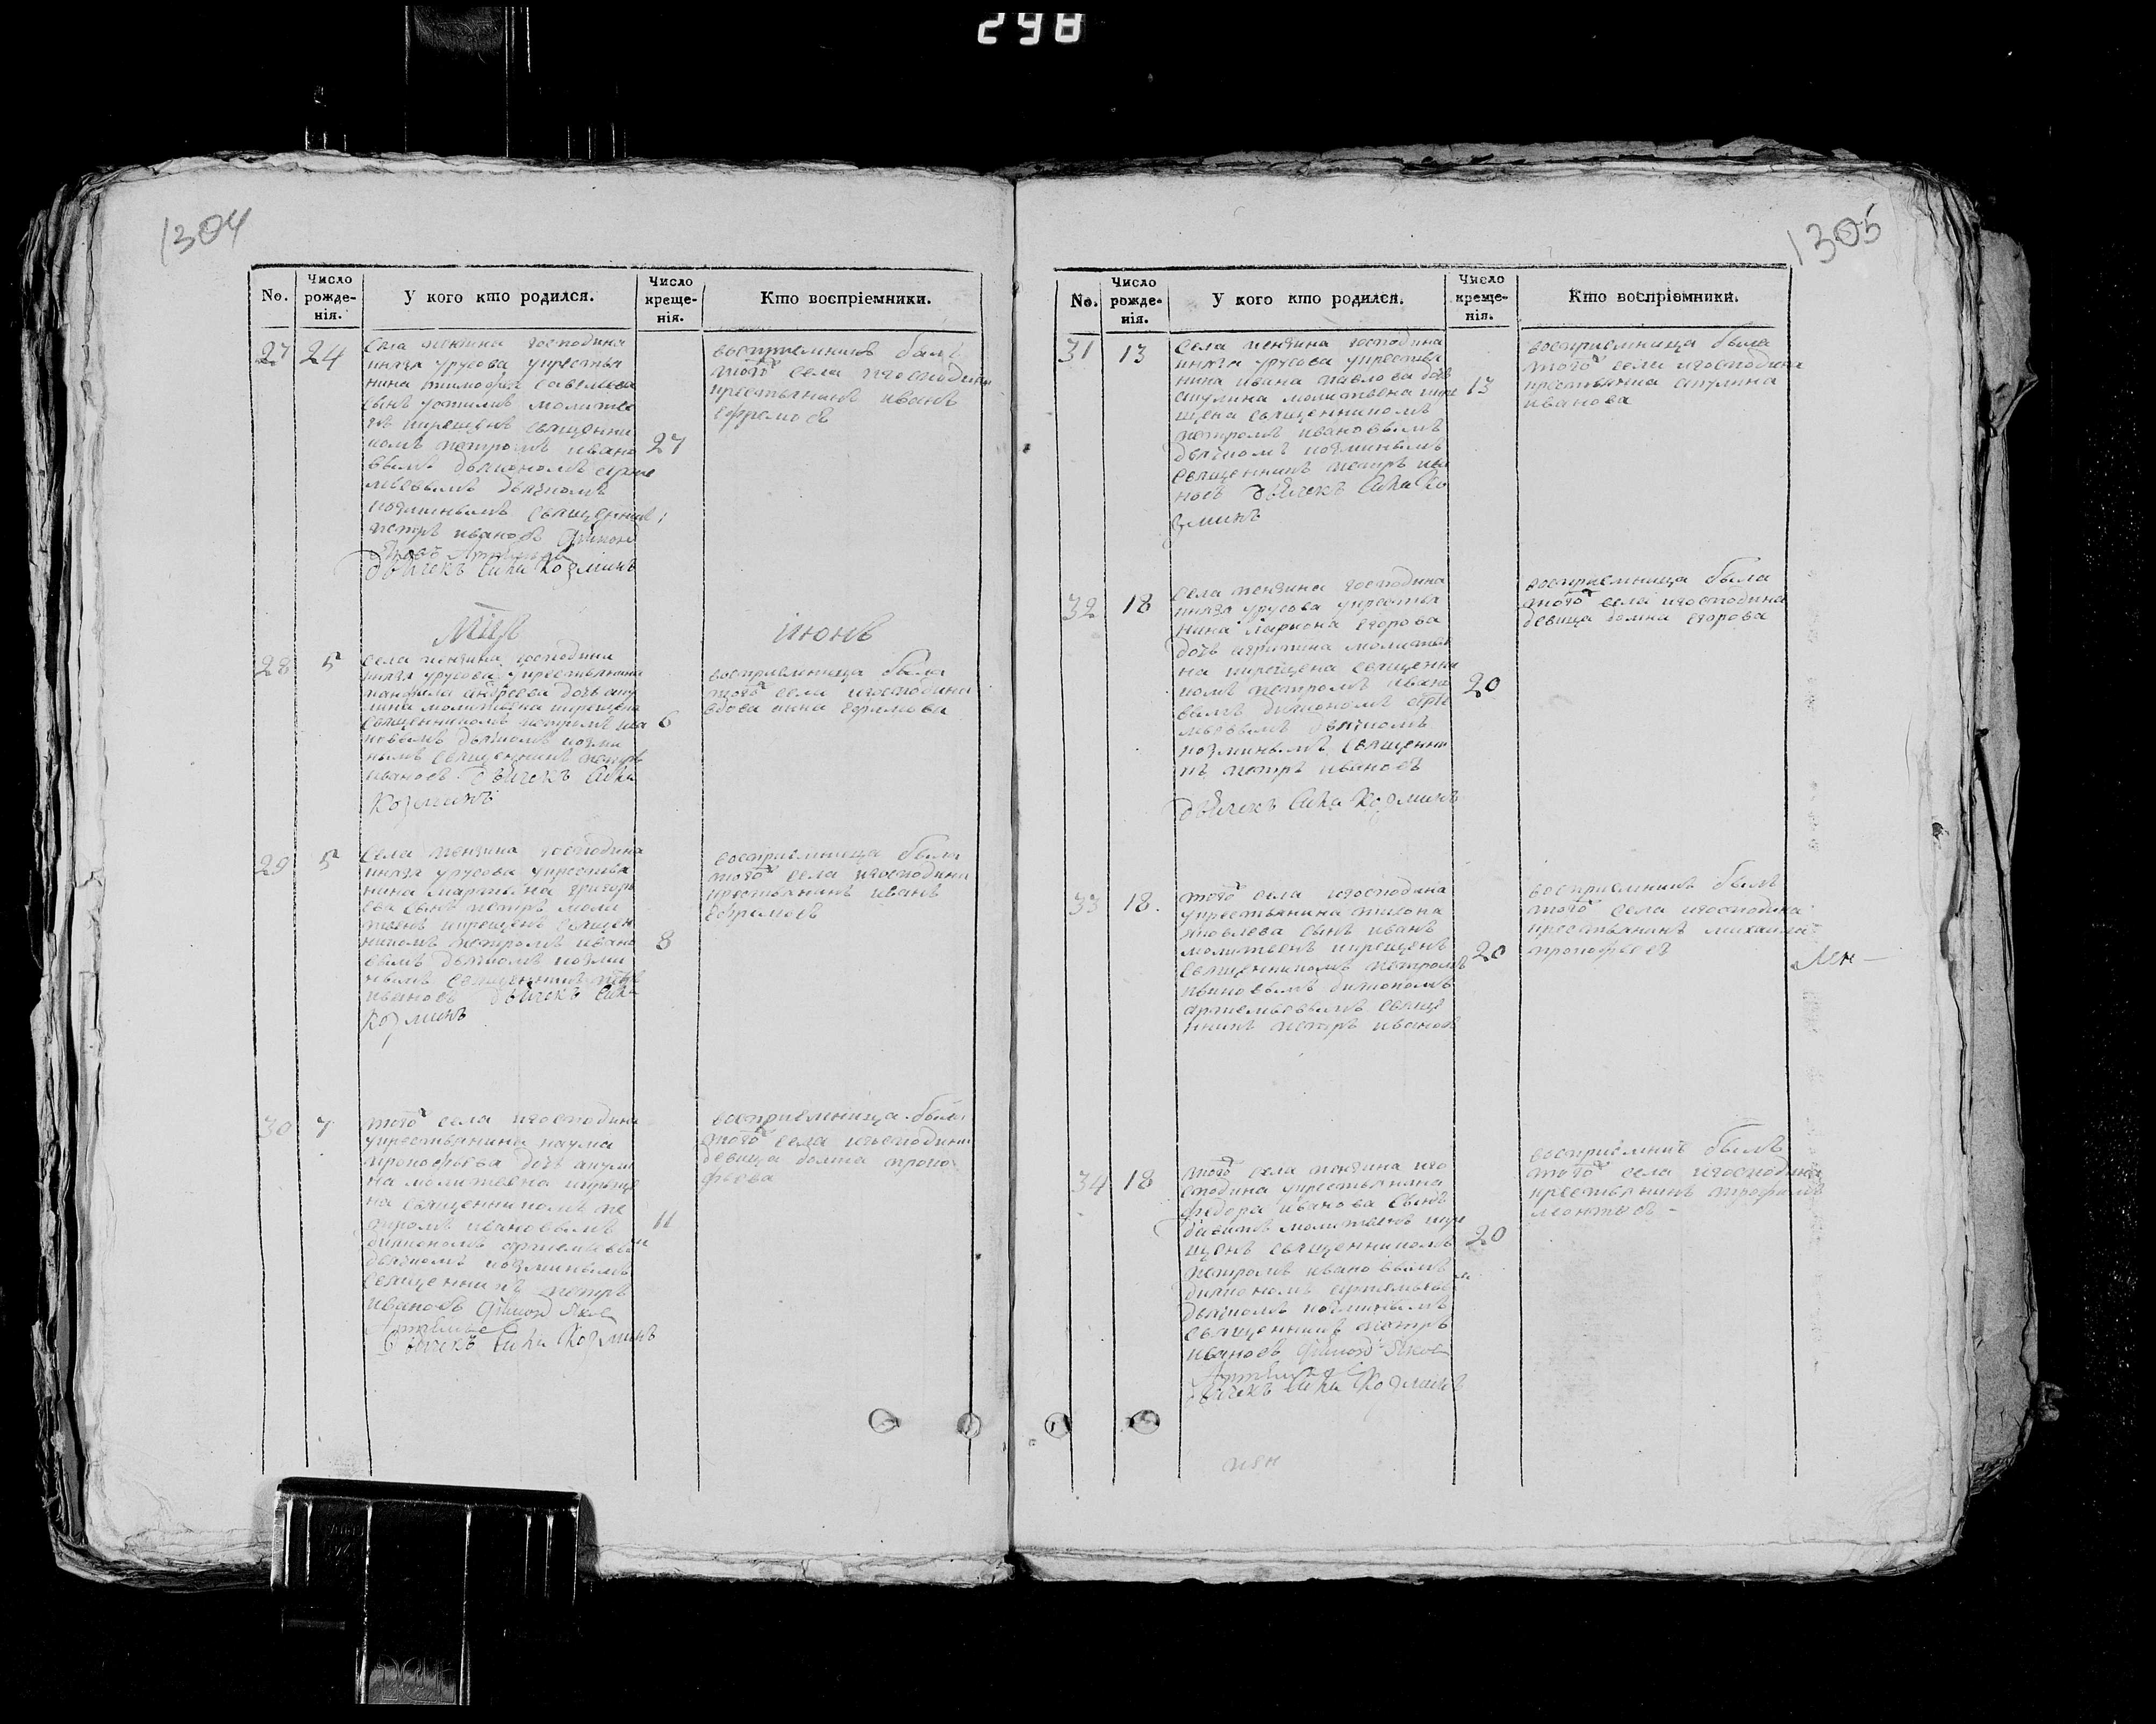 298
1304
No.
Число рожде-нія.
У кого кто родился.
Число креще-нія.
Кто воспріемники.
27
24
села пензина господина
князя урусова укрестья
нина тимофея савелева
сынъ устимъ молитве
нъ икрещенъ священни
комъ петромъ ивано
27
вымъ дьякономъ артe
мьевымъ дьячкомъ
козминымъ священникъ
петръ ивановъ Дьяконъ
Яковъ Артемьевъ
дьячекъ Сила Козминъ
воспрiемникъ былъ
того села игосподина
крестьянинъ иванъ
ефремовъ
июнь
28
5
села пензина господина
князя урусова укрестьянина
панфила андреева дочь аку
лина молитвена икрещена
священникомъ петромъ ива
6
новымъ дьячкомъ козми
нымъ священникъ петръ
ивановъ Дьячекъ Сила
Козминъ
восприемница была
того села игосподина
вдова анна ефимова
29
5
села пензина господина
князя урусова укрестья
нина мартына григорь
ева сынъ петръ моли
твенъ икрещенъ священ
никомъ петромъ ивано
8
вымъ дьячкомъ козми
нымъ священникъ петръ
ивановъ дьячекъ Сила
Козминъ
восприемница была
того села игосподина
крестьянинъ иванъ
30
7
того села игосподина
укрестьянина наума
прокофьева дочь акули
на молитвена икреще
на священникомъ пе
тромъ ивановымъ
11
дьякономъ артемьевым
дьячкомъ козминымъ
священникъ петръ
ивановъ Дьяконъ Яков
Артемьевъ
Дьячекъ Сила Козминъ
восприемница была
того села игосподина
девица домна проко
фьева
1305
No.
Число рожде-нія.
У кого кто родился.
Число креще-нія.
Кто воспріемники.
31
13
села пензина господина
князя урусова укрестья
нина ивана павлова дочь
акулина молитвена икре
13
щена священникомъ
петромъ ивановымъ
дьячкомъ козминымъ
священникъ петръ ива
новъ дьячекъ Сила Ко
зминъ
восприемница была
того села игосподина
крестьянка акулина
иванова
32
18
села пензина господина
князя урусова укрестья
нина лариона егорова
дочь молитве
на икрещена священни
комъ петромъ ивано
20
вымъ дьякономъ арте
мьевымъ дьячкомъ
козминымъ священни
къ петръ ивановъ
дьячекъ Сила Козминъ
восприемница была
того села игосподина
девица домна егорова
33
18.
того села игосподина
укрестьянина тихона
яковлева сынъ иванъ
молитвенъ икрещенъ
священникомъ петромъ
20
ивановымъ дьякономъ
артемьевымъ свяще
нникъ петръ ивановъ
восприемникъ былъ
того села игосподина
крестьянинъ михаила
прокофьевъ
34
18
того села пензина иго
сподина укрестьянина
федора иванова сынъ
молитвенъ икре
щенъ священникомъ
20
петромъ ивановымъ
дьякономъ артемьевым
дьячкомъ козминымъ
священникъ петръ
ивановъ Дьяконъ Яков
Артемьевъ
дьячекъ Сила Козминъ
восприемник былъ
того села игосподина
крестьянинъ трофимъ